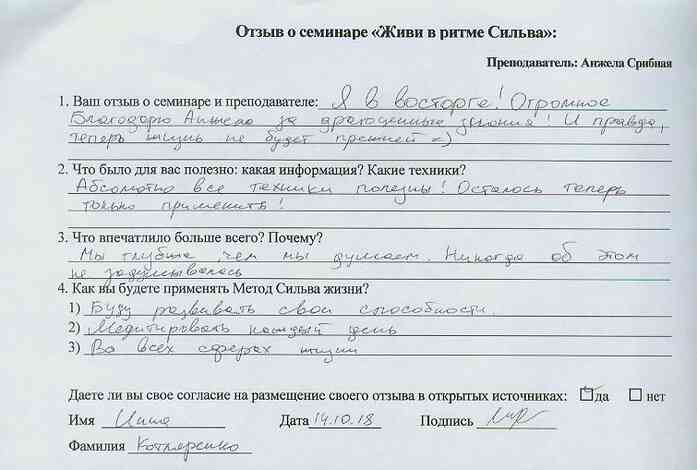 Отзыв о семинаре «Живи в ритме Сильва»:
Преподаватель: Анжела Срибная
1. Ваш отзыв о семинаре и преподавателе: Я в восторге! Огромное
Благодарю Анжела за драгоценные знания! И правда,
теперь жизнь не будет прежней =)
2. Что было для вас полезно: какая информация? Какие техники?
Абсолютно все техники полезны! Осталось теперь
только применить!
3. Что впечатлило больше всего? Почему?
Мы глубже чем мы думаем. Никогда об этом
не задумывалась
4. Как вы будете применять Метод Сильва жизни?
1) Буду развивать свои способности.
2) Медитировать каждый день
3) Во всех сферах жизни
Даете ли вы свое согласие на размещение своего отзыва в открытых источниках: да нет
Имя Инна Дата 14.10.18 Подпись
Фамилия Котляренко